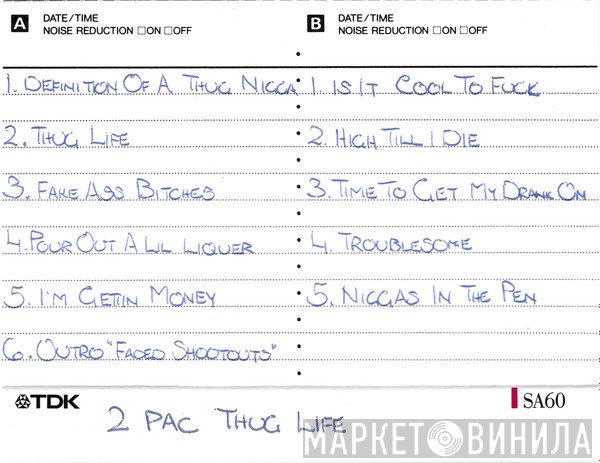 A DATE/TIME
NOISE REDUCTION □ON □OFF
1. DEFINITION OF A THUG NIGGA
2. THUG LIFE
3. FAKE ASS BITCHES
4. POUR OUT A LIL LIQUER
5. I'M GETTIN MONEY
6. OUTRO "FADED SHOOTOUTS"
B DATE/TIME
NOISE REDUCTION □ON □OFF
1. IS IT COOL TO FUCK
2. HIGH TILL I DIE
3. TIME TO GET MY DRANK ON
4. TROUBLESOME
5. NIGGAS IN THE PEN
TDK
SA60
2 PAC THUG LIFE
МАРКЕТ ВИНИЛА